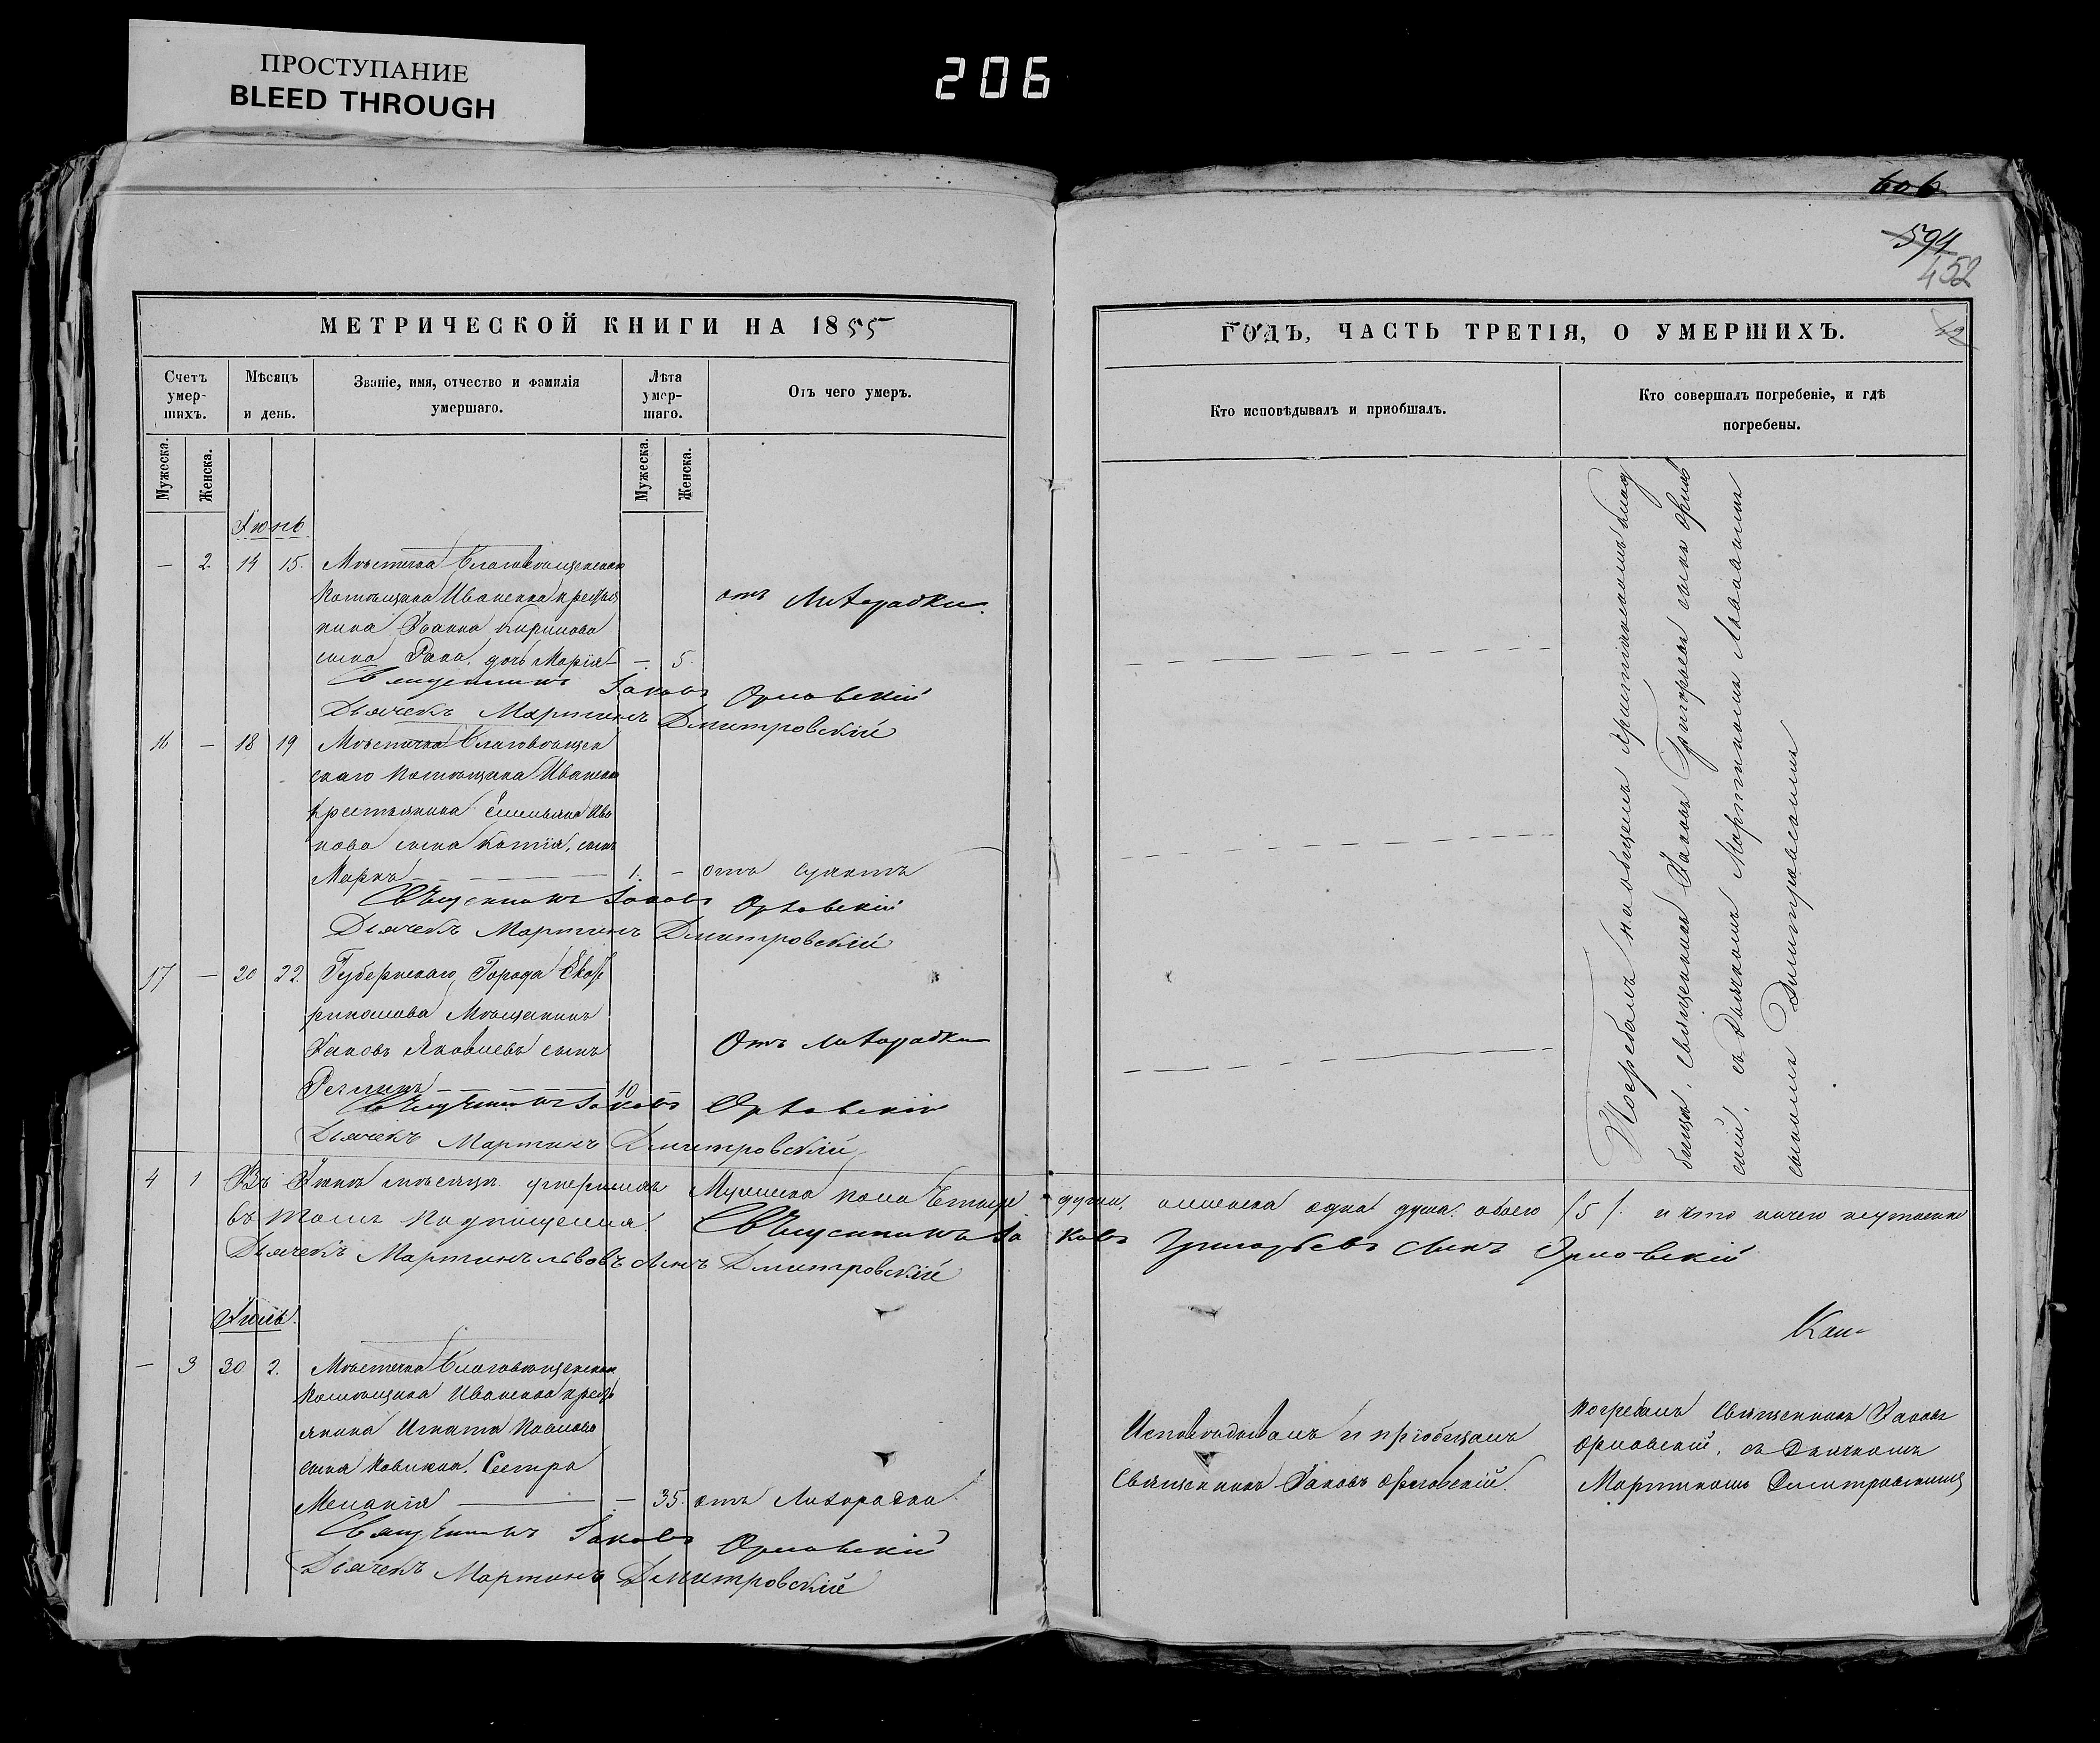 ПРОСТУПАНИЕ
BLEED THROUGH
206
606
594
452
МЕТРИЧЕСКОЙ КНИГИ НА 1855
Счетъ умер-шихъ.
Мѣсяцъ и день.
Званіе, имя, отчество и фамилія умершаго.
Лѣта умер-шаго.
Отъ чего умеръ.
Мужеска.
Женска.
Мужеска.
Женска.
Іюнь
— 2. 14 15. Мѣстечка Благовѣщенскаго
Помѣщика Иваненка крестья
нина Іоанна Кирилова
сына Рака, дочь Марія — — 5. отъ Лихорадки.
Священникъ Іаковъ Орловскій
Дьячекъ Мартинъ Дмитровскій
16 — 18 19 Мѣстечка Благовѣщен
скаго Помѣщика Иваненка
крестьянина Емельяна Ива
нова сына сынъ
Марко — 1. — отъ
Священникъ Іаковъ Орловскій
Дьячекъ Мартинъ Дмитровскій
17 — 20 22. Губернскаго Города Екате
ринослава Мѣщанинъ
Іаковъ Яковлевъ сынъ
10 Отъ Лихорадки
Священникъ Іаковъ Орловскій
Дьячекъ Мартинъ Дмитровскій
4 1 Въ Іюнѣ мѣсяцѣ умершихъ Мужеска пола Четыре
въ томъ подпишемся. Священникъ Іа
Дьячекъ Мартинъ Львовъ сынъ Дмитровскій
Іюль.
— 3 30 2. Мѣстечка Благовѣщенскаго
Помѣщика Иваненка кресть
янина Игната Павлова
сына Сестра
Меланія — — 35. отъ Лихорадки.
Священникъ Іаковъ Орловскій
Дьячекъ Мартинъ Дмитровскій
ГОДЪ, ЧАСТЬ ТРЕТІЯ, О УМЕРШИХЪ.
Кто исповѣдывалъ и приобщалъ.
Кто совершалъ погребеніе, и гдѣ погребены.
Погребалъ на общемъ христіанскомъ клад
бищѣ, священникъ Іаковъ Григорьевъ сынъ Орлов
скій, съ Дьячкомъ Мартиномъ Львовымъ
сыномъ Дмитровскимъ
души, а женска одна душа. обоего /5/. и что ничего не утаенно
ковъ Григорьевъ сынъ Орловскій
Исповѣдывалъ и пріобщалъ
Священникъ Іаковъ Орловскій.
Погребалъ Священникъ Іаковъ
Орловскій, съ Дьячкомъ
Мартиномъ Дмитровскимъ